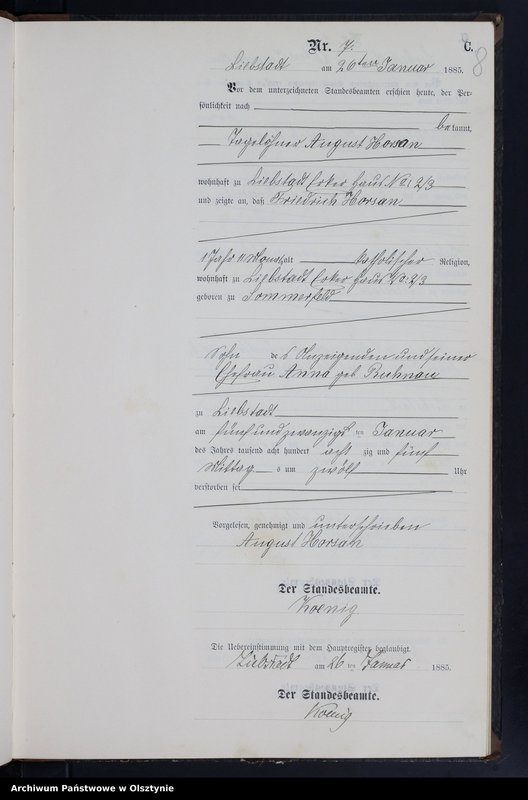 Nr. 7. C.
8
Liebstadt am 26ten Januar 1885.
Vor dem unterzeichneten Standesbeamten erschien heute, der Per-
sönlichkeit nach
bekannt,
Tagelöhner August Horsan
wohnhaft zu Liebstadt Haus No: 2/3
und zeigte an, daß Friedrich Horsan
1 Jahr 11 Monat alt katholischer Religion,
wohnhaft zu Liebstadt Haus No: 2/3
geboren zu Sommerfeld
Sohn des Anzeigenden und seiner
Ehefrau Anna geb. Ruhnau
zu Liebstadt
am fünf und zwanzigsten Januar
des Jahres tausend acht hundert achtzig und fünf
Mittags um zwölf Uhr
verstorben sei
Vorgelesen, genehmigt und unterschrieben
August Horsan
Der Standesbeamte.
Koenig
Die Uebereinstimmung mit dem Hauptregister beglaubigt.
Liebstadt am 26ten Januar 1885.
Der Standesbeamte.
Koenig
Archiwum Państwowe w Olsztynie